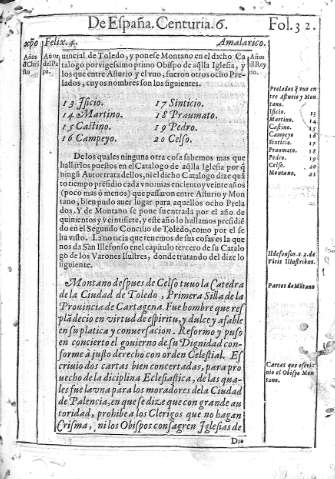 De España. Centuria. 6. Fol. 32.
xpo Felix. 4. Amalarico.
Años de Christo
Años del Papa.
Años del Rey no.
uincial de Toledo, y ponese Montano en el dicho Ca
talogo por vigesimo primo Obispo de aq̃lla Iglesia, y
los que entre Asturio y el vuo, fueron otros ocho Pre
lados, cuyos nombres son los siguientes.
13 Isicio. 17 Sinticio.
14 Martino. 18 Praumato.
15 Castino. 19 Pedro.
16 Campeyo. 20 Celso.
De los quales ninguna otra cosa sabemos mas que
hallarlos puestos en el Catalogo de aq̃lla Iglesia por q̃
ningũ Autor trata dellos, ni el dicho Catalogo dize quã
to tiempo presidio cada vno mas en ciento y veinte años
(poco mas ò menos) que passaron entre Asturio y Mon
tano, bien pudo auer lugar para aquellos ocho Prela
dos. Y de Montano se pone su entrada por el año de
quinientos y veintisiete, y este año lo hallamos presidir
en el Segundo Concilio de Toledo, como por el se
ha visto. La noticia que tenemos de sus cosas es la que
nos da San Illefonso en el capitulo tercero de su Catalo
go de los Varones Ilustres, donde tratando del dize lo
siguiente.
Montano despues de Celso tuuo la Catedra
de la Ciudad de Toledo, Primera Silla de la
Prouincia de Cartagena. Fue hombre que res
plãdecio en virtud de espiritu, y dulce y afable
en su platica y conuersacion. Reformo y puso
en concierto el gouierno de su Dignidad con
forme à justo derecho con orden Celestial. Es
criuio dos cartas bien concertadas, para pro
uecho de la diciplina Eclesiastica, de las qua
les fue la vna para los moradores de la Ciudad
de Palencia, en que se dize que con grande au
toridad, prohibe à los Clerigos que no hagan
Crisma, ni los Obispos consagren Iglesias de
Dio
Prelados q̃ vuo en
tre Asturio y Mon
tano.
Isicio. 13
Martino. 14
Castino. 15
Campeyo 16
Sinticio. 17
Praumato. 18
Pedro. 19
Celso. 20
Montano. 21
Ildefonso. c. 2. de
Viris Illustribus.
Partes de Mõtano
Cartas que escri
uio el Obispo Mon
tano.